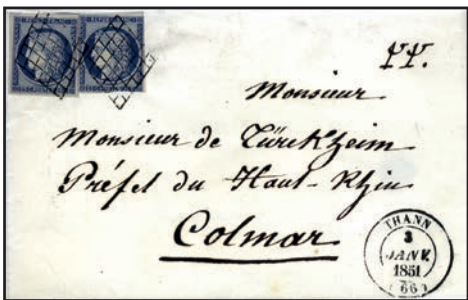 PP.
Monsieur
Monsieur de Türckheim
Préfet du Haut-Rhin
Colmar
THANN
3
JANV.
1851
(66)